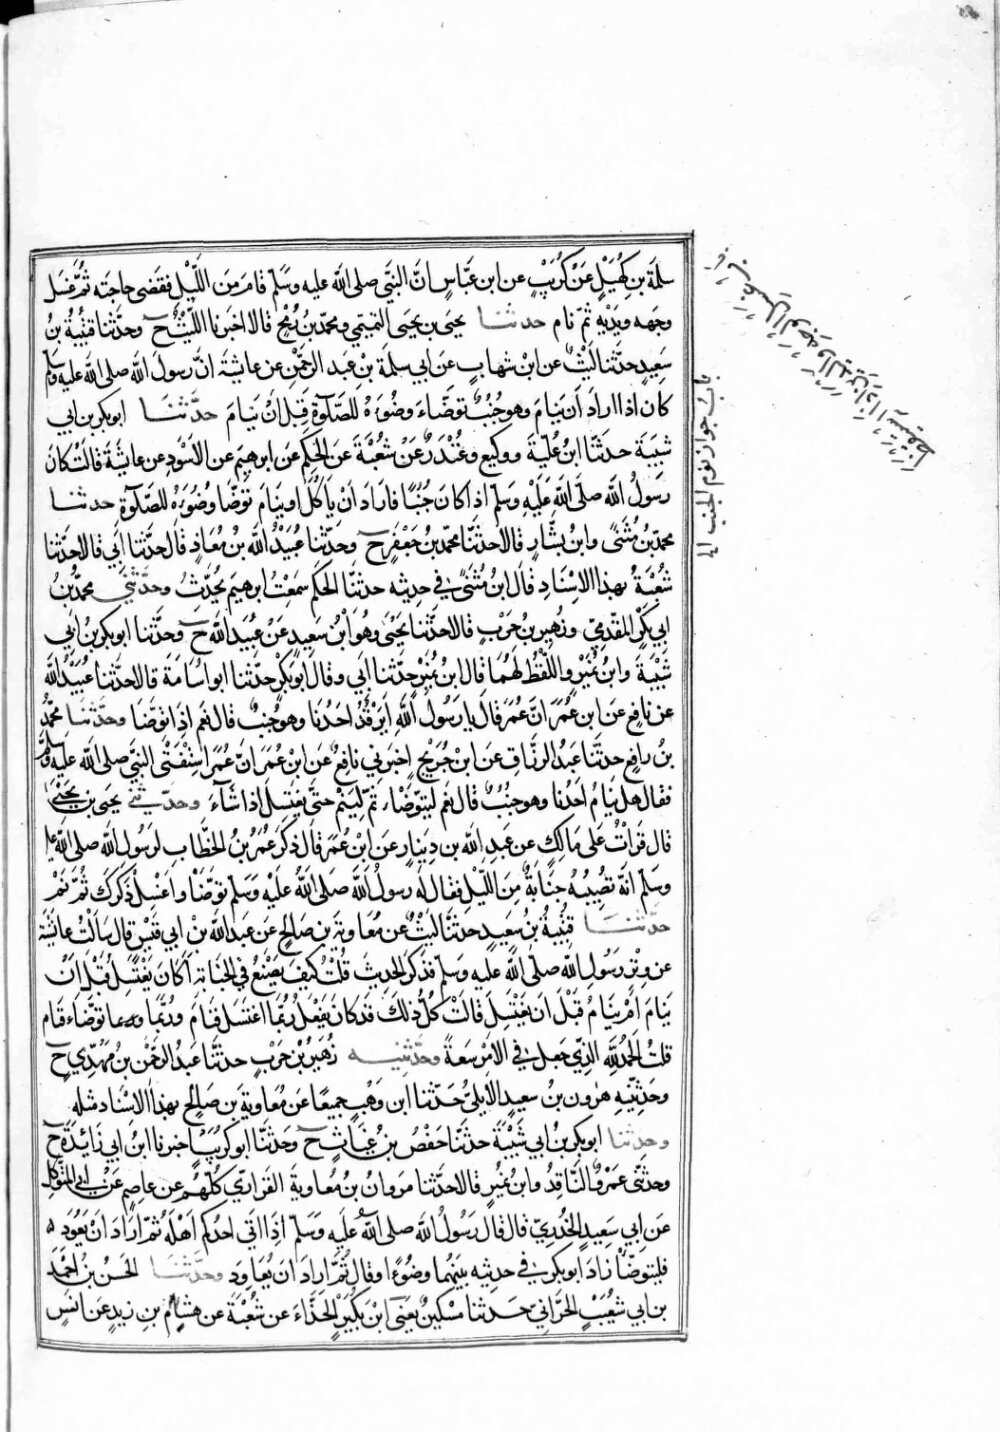 سلمة بن كُهَيْلٍ عَنْ كُرَيْبٍ عن ابن عبّاس انّ النبيّ صلى الله عليه وسلم قام من اللّيل فقضى حاجته ثمّ غسل
وجهه ويديه ثم نام حدثنا يحيى بن يحيى التميمي ومحمد بن رمح قالا اخبرنا الليث ح وحدثنا قتيبة بن
سعيد حدّثنا ليث عن ابن شهاب عن ابي سلمة بن عبد الرحمن عن عايشة انّ رسول الله صلى الله عليه وسلم
كان اذا اراد ان ينام وهو جنب توضّاء وضوءه للصّلوة قبل ان ينام حدّثنا ابوبكر بن ابي
شيبة حدثنا ابن عليّة ووكيع وغندر عن شعبة عن الحكم عن ابرهيم عن الاسود عن عايشة قالت كان
رسول الله صلى الله عليه وسلم اذا كان جنبًا فاراد ان ياكل او ينام توضا وضوءه للصّلوة حدثنا
محمد بن مثنى وابن بشّار قالا حدثنا محمد بن جعفر ح وحدّثنا عبيد الله بن معاذ قال حدّثنا ابي قالا حدّثنا
شعبة بهذا الاسناد قال ابن مثنى في حديثه حدثنا الحكم سمعت ابرهيم يحدّث وحدّثني محمّد بن
ابي بكر المقدّمي وزهير بن حرب قالا حدّثنا يحيى وهو ابن سعيد عن عبيد الله ح وحدّثنا ابوبكر بن ابي
شيبة وابن نمير واللّفظ لهما قال ابن نمير حدّثنا ابي وقال ابوبكر حدّثنا ابو اسامة قالا حدّثنا عبيد الله
عن نافع عن ابن عمر انّ عمر قال يا رسول الله ايرقد احدنا وهو جنب قال نعم اذا توضا وحدّثنا محمّد
بن رافع حدثنا عبد الرزاق عن ابن جريج اخبرني نافع عن ابن عمر انّ عمر استفتى النبيّ صلى الله عليه وسلم
فقال هل ينام احدنا وهو جنب قال نعم ليتوضّاء ثم لينم حتى يغتسل اذا شاء وحدّثني يحيى بن يحيى
قال قرات على مالك عن عبد الله بن دينار عن ابن عمر قال ذكر عمر بن الخطّاب لرسول الله صلى الله عليه
وسلم انّه تصيبه جنابة من الليل فقال له رسول الله صلى الله عليه وسلم توضّا واغسل ذكرك ثم نم
حدّثنا قتيبة بن سعيد حدثنا ليث عن معاوية بن صالح عن عبد الله بن ابي قيس قال سالت عائشة
عن وتر رسول الله صلى الله عليه وسلم فذكر الحديث قلت كيف يصنع في الجنابة اكان يغتسل قبل ان
ينام ام ينام قبل ان يغتسل قالت كل ذلك قد كان يفعل ربما اغتسل فنام وربّما توضّاء فنام
قلت الحمد لله الذي جعل في الامر سعة وحدّثنيه زهير بن حرب حدّثنا عبد الرحمن بن مهديّ ح
وحدثنيه هرون بن سعيد الايليّ حدّثنا ابن وهب جميعا عن معاوية بن صالح بهذا الاسناد مثله
وحدثنا ابوبكر بن ابي شيبة حدثنا حفص بن غياث ح وحدثنا ابو كريب اخبرنا ابن ابي زائدة ح
وحدثنى عمرو الناقد وابن نمير قالا حدّثنا مروان بن معاوية الفزاري كلّهم عن عاصم عن ابى المتوكل
عن ابي سعيد الخدريّ قال قال رسول الله صلى الله عليه وسلم اذا اتى احدكم اهله ثم اراد ان يعود
فليتوضّا زاد ابوبكر في حديثه بينهما وضوءًا وقال ثمّ اراد ان يعاود وحدّثنا الحسن بن احمد
بن ابي شعيب الحرّاني حدثنا مسكين يعني ابن بكير الحذّاء عن شعبة عن هشام بن زيد عن انس
باب جواز نوم الجنب